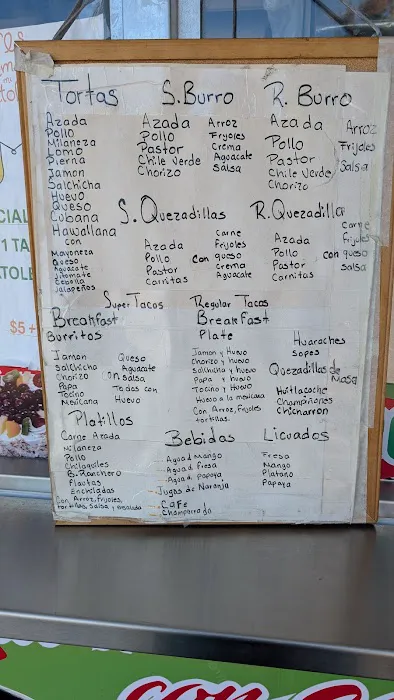 Tortas
Azada
Pollo
Milaneza
Lomo
Pierna
Jamon
Salchicha
Huevo
Queso
Cubana
Hawallana
con
Mayoneza
Queso
Aguacate
Jitomate
Cebolla
Jalapeños
S. Burro
Azada
Pollo
Pastor
Chile Verde
Chorizo
Arroz
Frijoles
Crema
Aguacate
Salsa
R. Burro
Azada
Pollo
Pastor
Chile Verde
Chorizo
Arroz
Frijoles
Salsa
S. Quezadillas
Azada
Pollo
Pastor
Carnitas
con
Carne
Frijoles
queso
crema
Aguacate
R. Quezadilla
Azada
Pollo
Pastor
Carnitas
con
Carne
Frijoles
queso
salsa
Super Tacos
Regular Tacos
Breakfast
Burritos
Jamon
Salchicha
Chorizo
Papa
Tocino
Mexicana
on
Queso
Aguacate
Salsa
Todas con
Huevo
Breakfast
Plate
Jamon y Huevo
Chorizo y huevo
Salchicha y huevo
Papa y huevo
Tocino y Huevo
Hueso a la mexicana
Con Arroz, Frijoles
tortillas.
Huaraches
Sopes
Quezadillas de
Masa
Huitlacoche
Champiñones
Chicharron
Platillos
Carne Azada
Milaneza
Pollo
Chilaquiles
B. Ranchero
Flautas
Enchiladas
Con Arroz, frijoles,
tortillas, salsa y ensalada
Bebidas
Agua d Mango
Agua d fresa
Agua d papaya
Jugos de Naranja
Cafe
Champurrado
Licuados
Fresa
Mango
Platano
Papaya
$5+
con